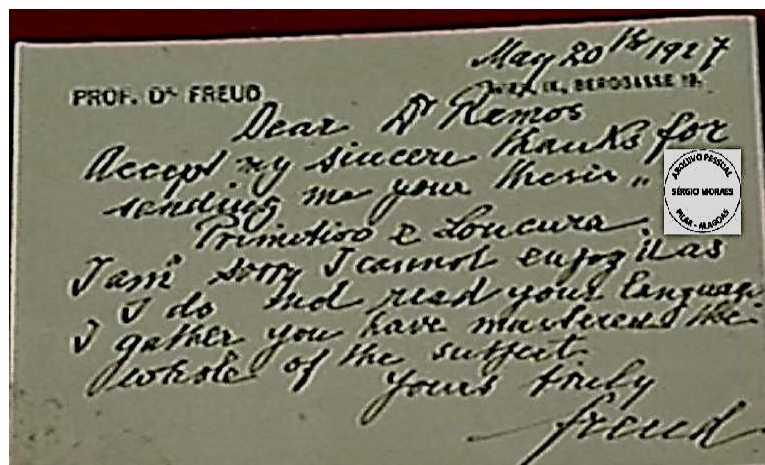 May 20th 1927
PROF. Dr. FREUD
WIEN, IX., BERGGASSE 19.
Dear Dr Ramos
Accept my sincere thanks for
sending me your thesis "
Primitivo e Loucura.
I am sorry I cannot enjoy it as
I do not read your language
I gather you have mastered the
whole of the subject
Yours truly
Freud
ARQUIVO PESSOAL
SÉRGIO MORAES
PILAR - ALAGOAS